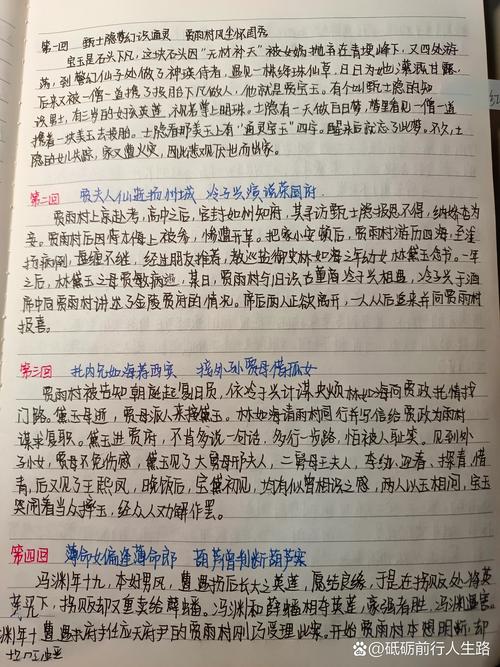 第一回 甄士隐梦幻识通灵 贾雨村风尘怀闺秀
宝玉是石头下凡，这块石头因“无材补天”被女娲抛弃在青埂峰下，又四处游
荡，到警幻仙子处做了神瑛侍者，遇见一株绛珠仙草，日日为她灌溉甘露，
后来又被一僧一道携了投胎下凡做人，他就是贾宝玉。有个叫甄士隐的知
识男士，有三岁的女孩英莲，不视若掌上明珠。士隐有一天做白日梦，梦里看见一僧一道
携着一块美玉去投胎。士隐看那美玉上有“通灵宝玉”四字。醒来后就忘了此梦。不久，士
隐的女儿失踪，家又遭火灾，因此悲观厌世而出家。
第二回 贾夫人仙逝扬州城 冷子兴演说荣国府
贾雨村上京赴考，高中之后，官封如州知府，其寻访甄士隐报恩不得，纳娇杏为
妾。贾雨村后因侍才侮上被参，惨遭开革。把家小安顿后，贾雨村游历四海，至淮
扬病倒，盘缠不继，经过朋友推荐，教巡盐御史林如海之年幼女林黛玉念书。一年
之后，林黛玉之母贾敏病逝，某日，贾雨村与旧识古董商冷子兴相遇，冷子兴于酒
席中向贾雨村讲述了金陵贾府的情况。席后两人正欲离开，一人从后追来并向贾雨村
报喜。
第三回 托内兄如海荐西宾 接外孙贾母惜孤女
贾雨村被告知朝廷起复旧员，依冷子兴计谋央烦林如海向贾政托情找
门路。黛玉母逝，贾母派人来接黛玉。林如海请雨村同行并写信给贾政为雨村
谋求复职。黛玉进贾府，不肯多说一句话，多行一步路，怕被人耻笑。见到外
子小女，贾母不免伤感，黛玉见了大舅母邢夫人，二舅母王夫人，李纨、迎春、探春、惜
春，后又见了王熙凤，晚饭后，宝黛初见，均有似曾相识之感，两人以玉相问，宝玉
哭闹着当众摔玉，经众人劝解作罢。
第四回 薄命女偏逢薄命郎 葫芦僧判断葫芦案
冯渊年十九，本好男风，遭遇拐后长大之英莲，愿结良缘，于是在拐贩处将英
莲买下，拐贩却又重卖给薛蟠。冯渊和薛蟠相夺英莲，豪强有胜，冯渊遇害。
开始贾雨村本想明断，却